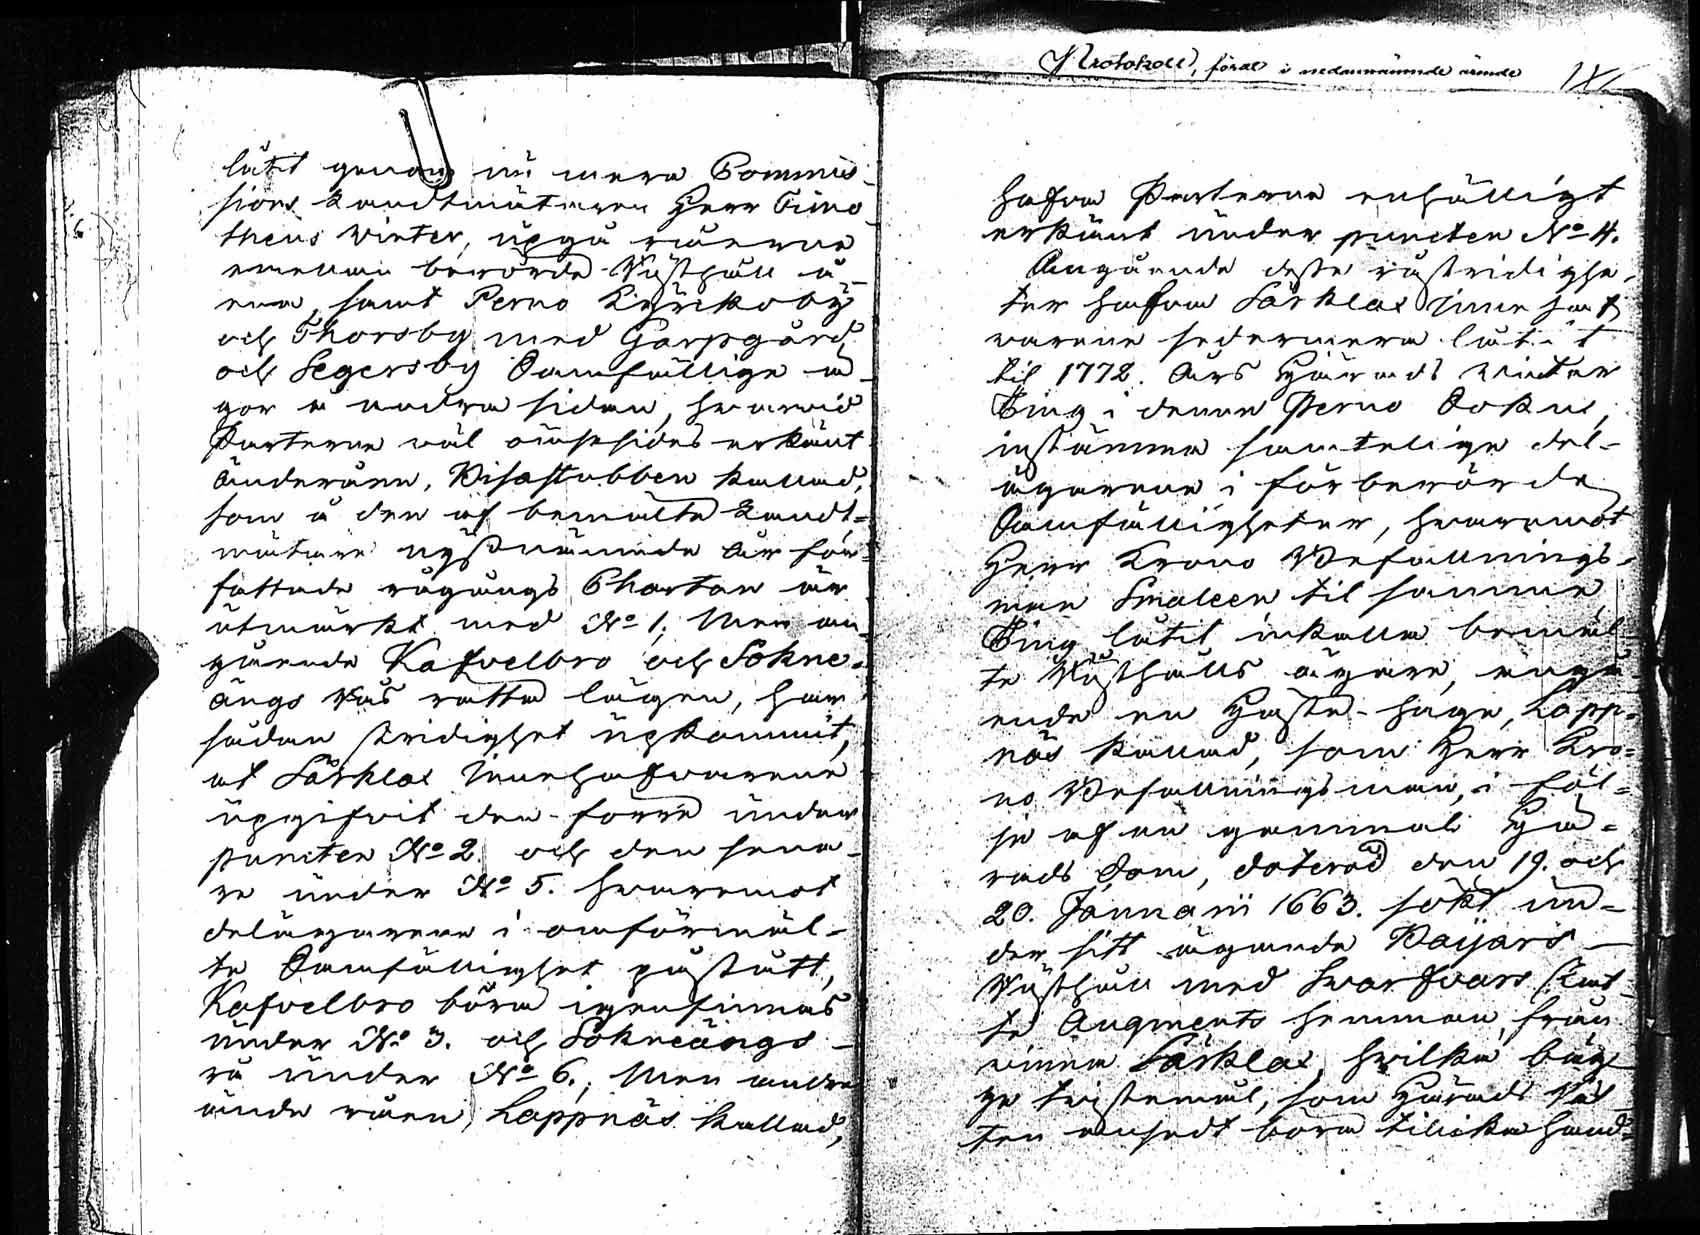 låtit genom nu mera Commis-
sions Landtmätaren Herr Timo
theus Winter, upgå råerne
emellan berörde Wästhäll å
ena, samt Perno Kyrkoby
och Thorsby med Garpgård
och Segersby Samfällige ä-
gor å andra sidan, hvarvid
Parterne väl ömsesides erkänt
Änderåen, Visastubben kallad,
som å den af bemälte Landt-
mätare nyssnämnde år för-
fattade rågångs Chartan är
utmärkt med No 1, Men an-
gående Kafvelbro och Sokne-
ängs Rås rätta lägen, har
sådan stridighet upkommit,
at Särklax Innehafvarene
upgifvit den förre under
puncten No 2. och den sena-
re under No 5. hvaremot
delägarene i omförmäl-
te Samfällighet påstått,
Kafvelbro böra igenfinnas
under No 3. och Sokneängs
rå under No 6., Men andre
ände råen Lappnäs kallad,
Protokoll, fördt i nedannämnde ärende
hafva Parterne enhälligt
erkänt under puncten No 4.
Angående desse råstridighe-
ter hafva Särklax Innehaf
varene sedermera låtit
til 1772. Års Härads Winter
Ting i denne Perno Sokn,
instämma samtelige del-
ägarene i förberörde
Samfälligheter, hvaremot
Herr Krono Befallnings-
man Smaleen til samma
Ting låtit inkalla bemäl-
te Wästhälls ägare, angå-
ende en Häste-hage, Lapp-
näs kallad, som Herr Kro-
no Befallningsman, i föl-
je af en gammal Hä-
rads Dom, daterad den 19. och
20. Januarii 1663. sökt un-
der sitt ägande Baijars
Wästhäll med Svarfvars
te Augments hemman, från
Särklax, hvilka bäg
ge tvistemål, som Härads Rät
ten ansedt böra tillika hand-